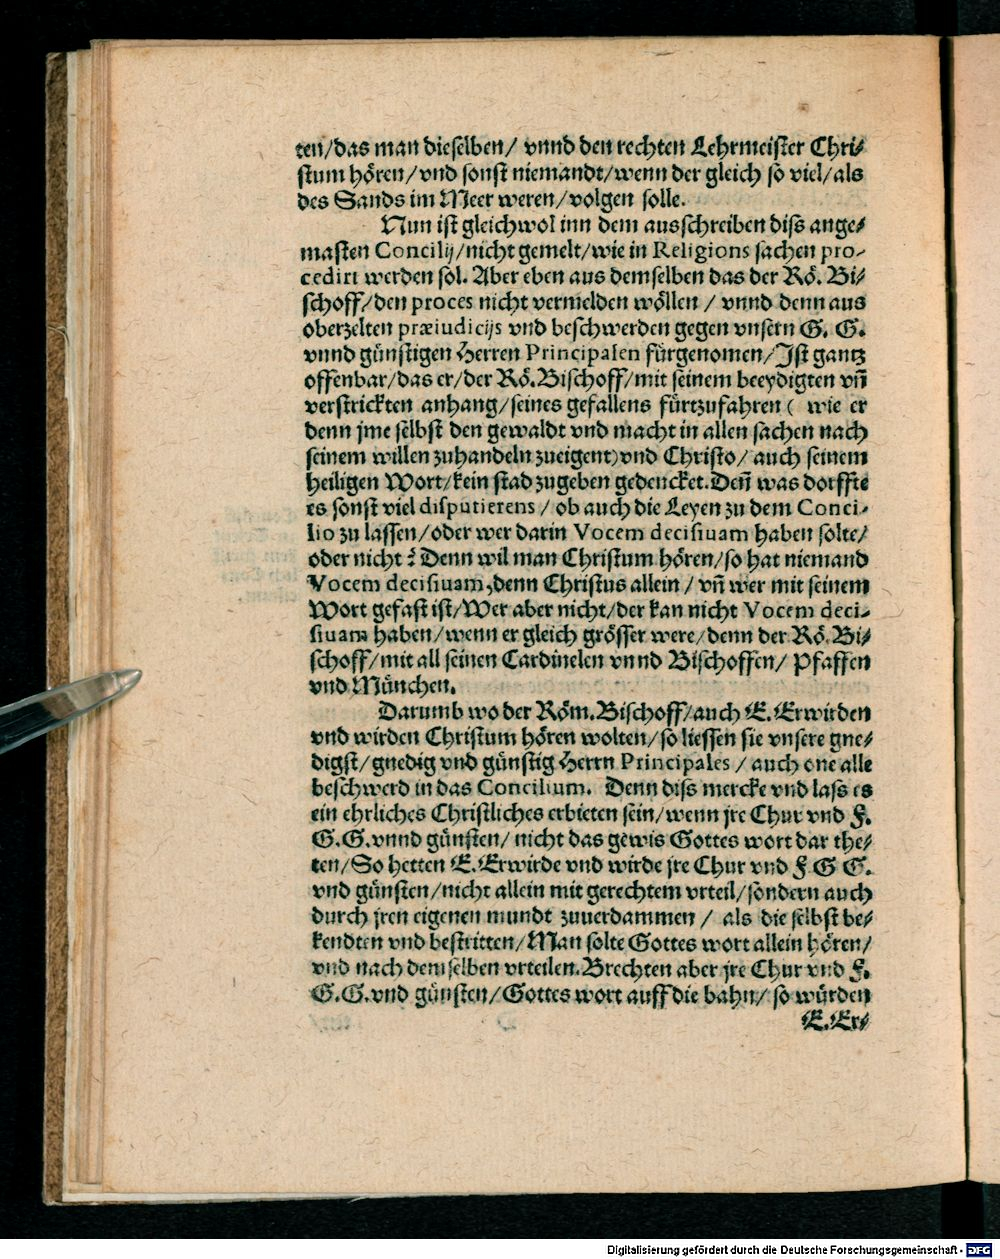 ten/das man dieselben/ vnnd den rechten Lehrmeister Chri-
stum hören/vnd sonst niemandt/wenn der gleich so viel/als
des Sands im Meer weren/volgen solle.
Nun ist gleichwol inn dem ausschreiben diss ange-
masten Concilij/nicht gemelt/wie in Religions sachen pro-
cedirt werden sol. Aber eben aus demselben das der Rö. Bi-
schoff/den proces nicht vermelden wöllen / vnnd denn aus
oberzelten præiudicijs vnd beschwerden gegen vnsern G. G.
vnnd günstigen Herren Principalen fürgenomen/Ist gantz
offenbar/das er/der Rö. Bischoff/mit seinem beeydigten vn̄
verstrickten anhang/seines gefallens fürtzufahren ( wie er
denn jme selbst den gewaldt vnd macht in allen sachen nach
seinem willen zuhandeln zueigent) vnd Christo/ auch seinem
heiligen Wort/kein stad zugeben gedencket. Den̄ was dorffte
es sonst viel disputierens / ob auch die Leyen zu dem Conci-
lio zu lassen/oder wer darin Vocem decisiuam haben solte/
oder nicht ? Denn wil man Christum hören/so hat niemand
Vocem decisiuam, denn Christus allein / vn̄ wer mit seinem
Wort gefast ist/Wer aber nicht/der kan nicht Vocem deci-
siuam haben/wenn er gleich grösser were/denn der Rö. Bi-
schoff/mit all seinen Cardinelen vnnd Bischoffen/ Pfaffen
vnd München.
Darumb wo der Röm. Bischoff/auch E. Erwirden
vnd wirden Christum hören wolten/so liessen sie vnsere gne-
digst/gnedig vnd günstig Herrn Principales / auch one alle
beschwerd in das Concilium. Denn diss mercke vnd lass es
ein ehrliches Christliches erbieten sein/wenn jre Chur vnd F.
G. G. vnnd günsten/ nicht das gewis Gottes wort dar the-
ten/So hetten E. Erwirde vnd wirde jre Chur vnd F G G.
vnd günsten/nicht allein mit gerechtem vrteil/sondern auch
durch jren eigenen mundt zuuerdammen / als die selbst be-
kendten vnd bestritten/Man solte Gottes wort allein hören/
vnd nach demselben vrteilen. Brechten aber jre Chur vnd F.
G. G. vnd günsten/Gottes wort auff die bahn/ so würden
E. Er-
Digitalisierung gefördert durch die Deutsche Forschungsgemeinschaft - DFG